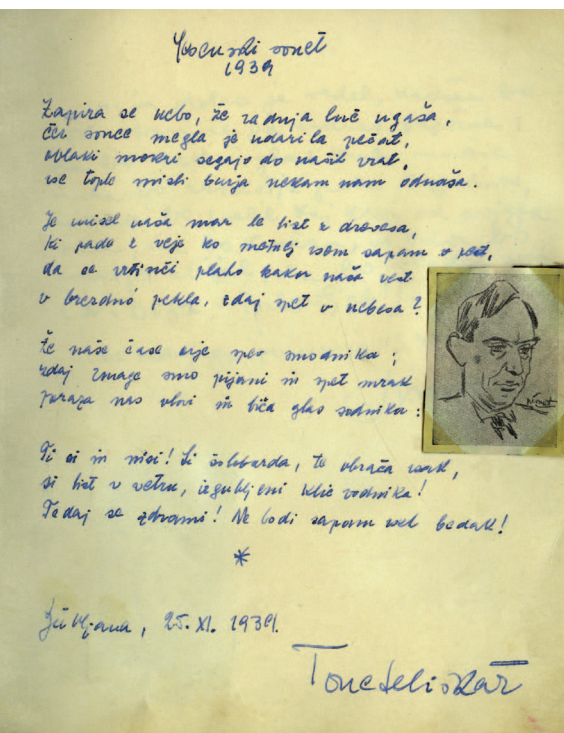 Jesenski sonet
1939
Zapira se nebo, že zadnja luč ugaša,
čez sonce megla je udarila pečat,
oblaki mokri segajo do naših vrat,
vse tople misli burja nekam nam odnaša.
Je misel naša mar le list z drevesa,
ki pade z veje ko metulj vsem sapam v pest,
da se vrtinči plaho kakor naša vest
v brezdno pekla, zdaj spet v nebesa?
Že naše čase vije spev smodnika;
zdaj zmage smo pijani in spet mrak
poraza nas ulovi in biča glas sodnika:
Ti si in nisi! Si te obrača vsak,
si list v vetru, izgubljeni klic vodnika!
Tedaj se zdrami! Ne bodi sapam vseh bedak!
*
Ljubljana, 25. XI. 1939.
Tone Seliškar